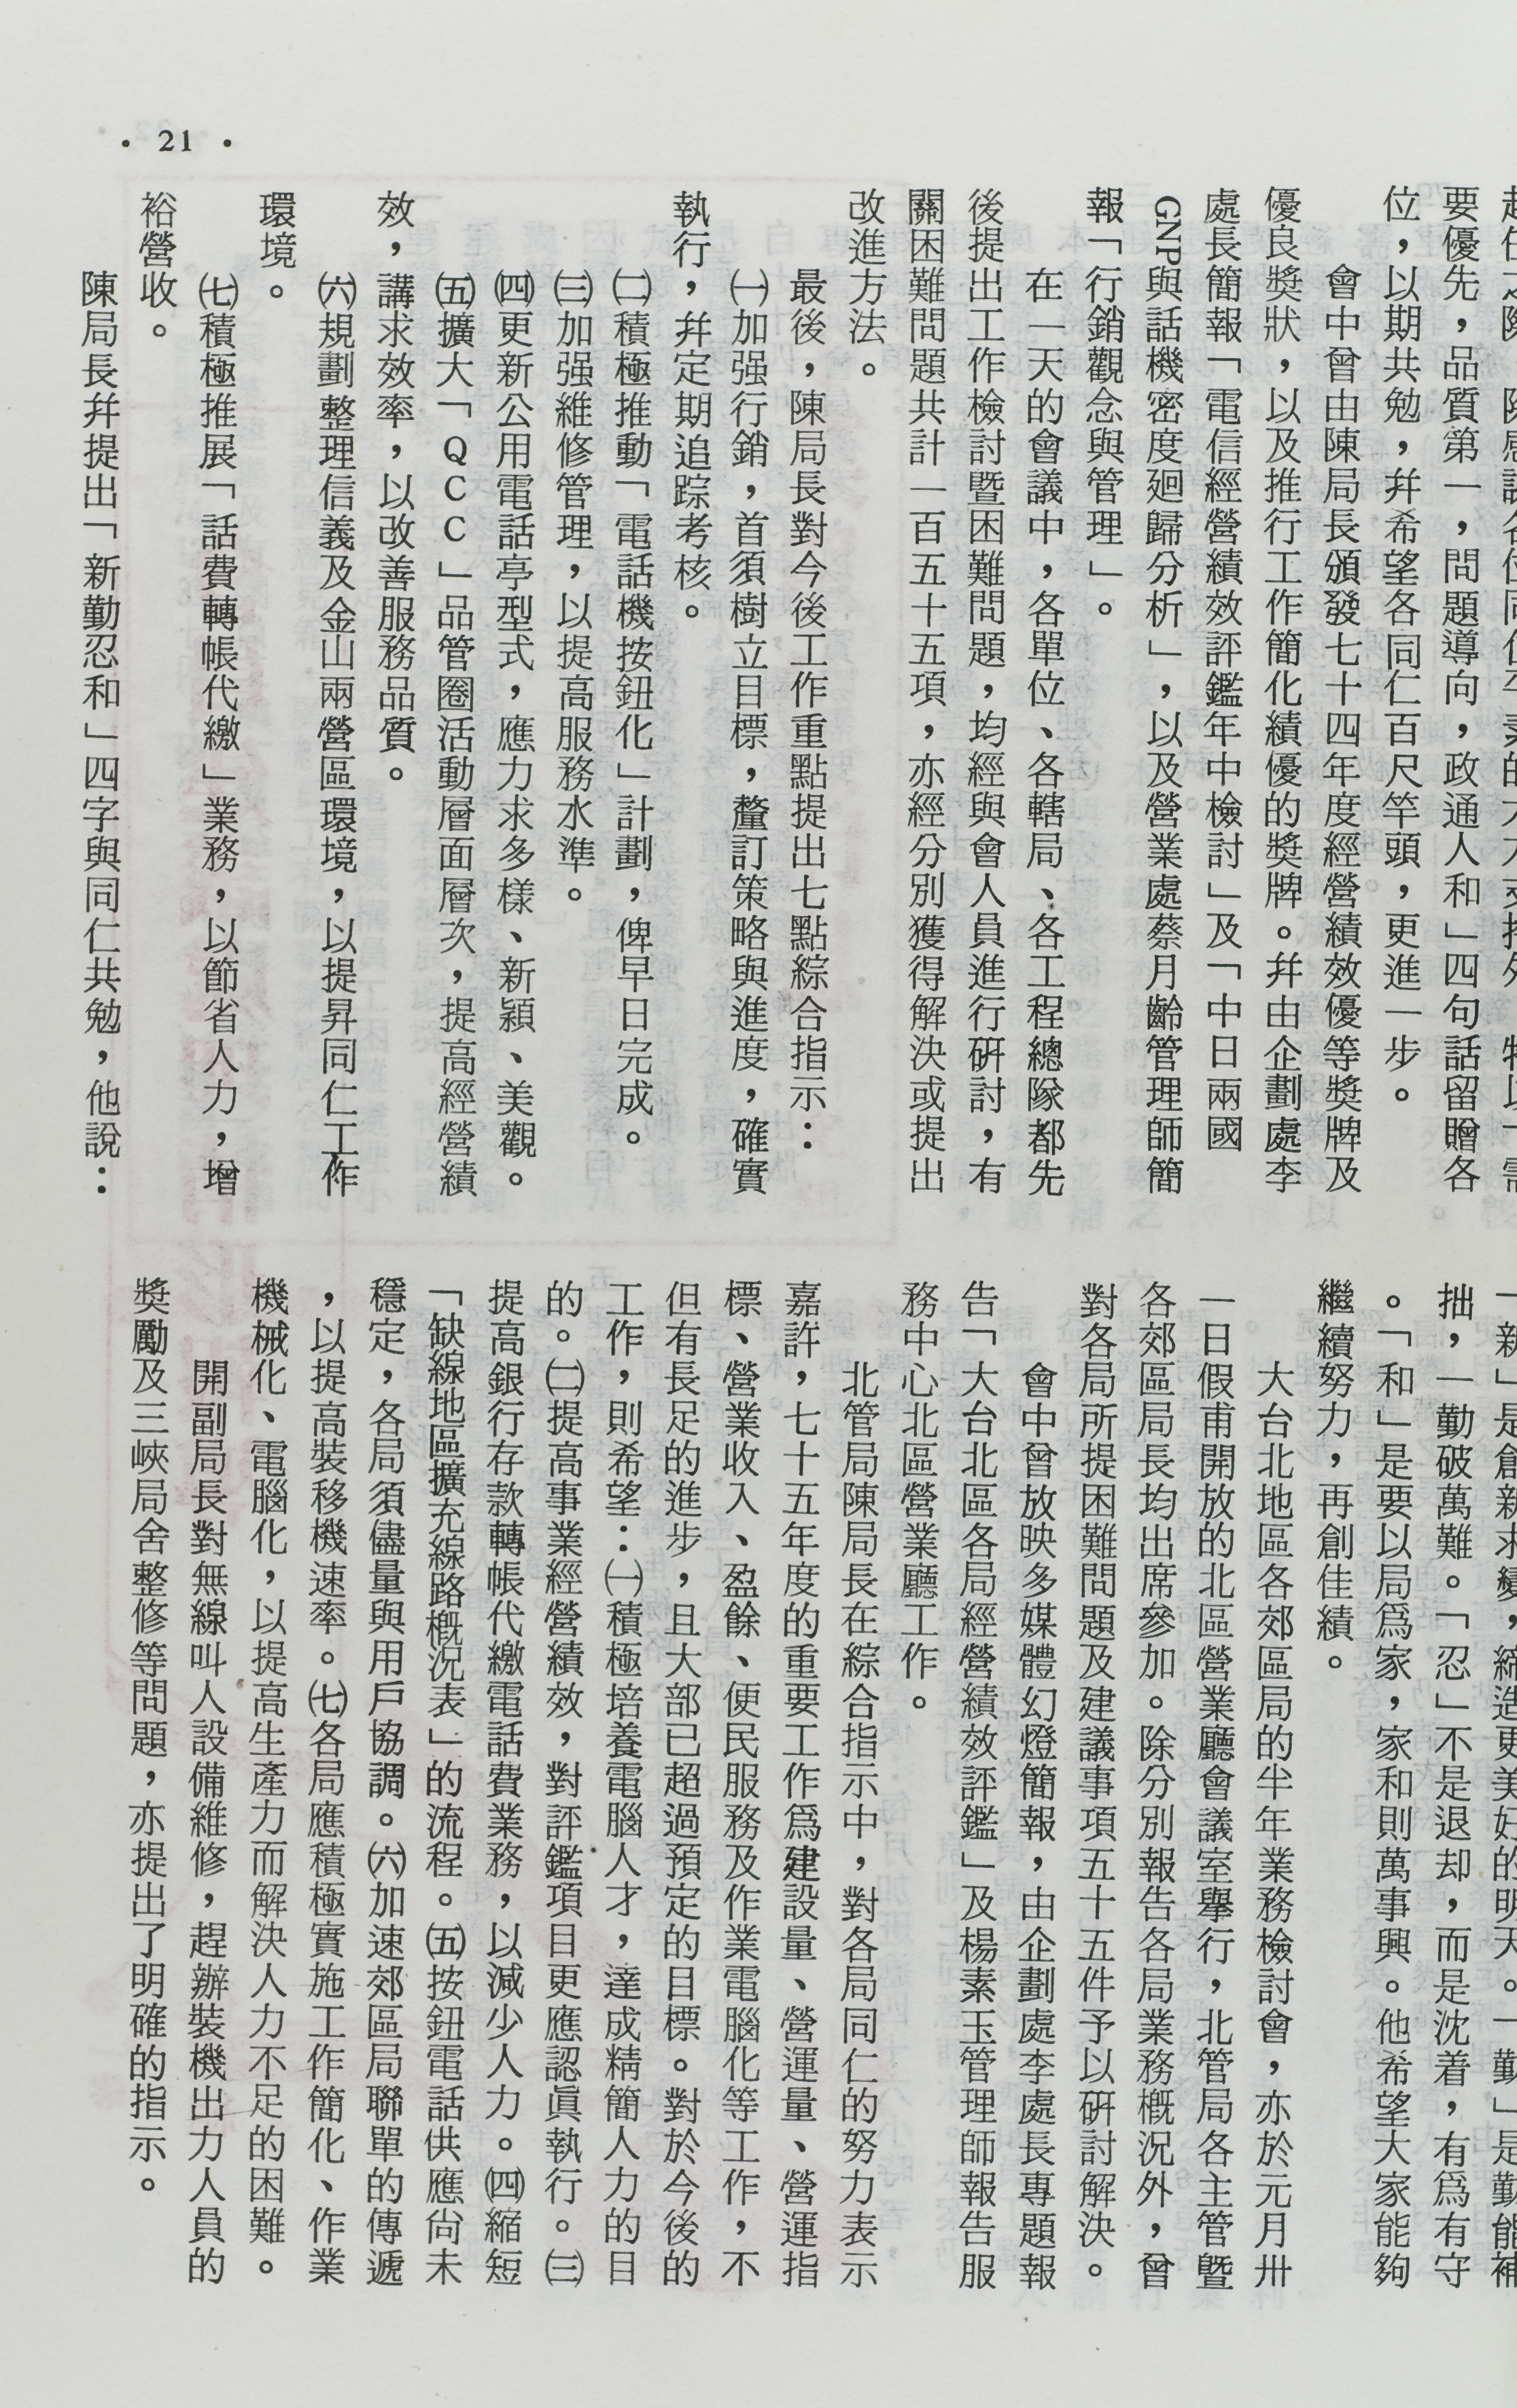 • 21 •
要優先，品質第一，問題導向，政通人和」四句話留贈各
位，以期共勉，幷希望各同仁百尺竿頭，更進一步。
會中曾由陳局長頒發七十四年度經營績效優等獎牌及
優良獎狀，以及推行工作簡化績優的獎牌。幷由企劃處李
處長簡報「電信經營績效評鑑年中檢討」及「中日兩國
GNP與話機密度廻歸分析」，以及營業處蔡月齡管理師簡
報「行銷觀念與管理」。
在一天的會議中，各單位、各轄局、各工程總隊都先
後提出工作檢討暨困難問題，均經與會人員進行硏討，有
關困難問題共計一百五十五項，亦經分別獲得解決或提出
改進方法。
最後，陳局長對今後工作重點提出七點綜合指示：
㈠加强行銷，首須樹立目標，釐訂策略與進度，確實
執行，幷定期追踪考核。
㈡積極推動「電話機按鈕化」計劃，俾早日完成。
㈢加强維修管理，以提高服務水準。
㈣更新公用電話亭型式，應力求多樣、新穎、美觀。
㈤擴大「ＱＣＣ」品管圈活動層面層次，提高經營績
效，講求效率，以改善服務品質。
㈥規劃整理信義及金山兩營區環境，以提昇同仁工作
環境。
㈦積極推展「話費轉帳代繳」業務，以節省人力，增
裕營收。
陳局長幷提出「新勤忍和」四字與同仁共勉，他說：
「新」是創新求變，締造更美好的明天。「勤」是勤能補
拙，一勤破萬難。「忍」不是退却，而是沈着，有爲有守
。「和」是要以局爲家，家和則萬事興。他希望大家能夠
繼續努力，再創佳績。
大台北地區各郊區局的半年業務檢討會，亦於元月卅
一日假甫開放的北區營業廳會議室舉行，北管局各主管暨
各郊區局長均出席參加。除分別報告各局業務概況外，曾
對各局所提困難問題及建議事項五十五件予以硏討解決。
會中曾放映多媒體幻燈簡報，由企劃處李處長專題報
告「大台北區各局經營績效評鑑」及楊素玉管理師報告服
務中心北區營業廳工作。
北管局陳局長在綜合指示中，對各局同仁的努力表示
嘉許，七十五年度的重要工作爲建設量、營運量、營運指
標、營業收入、盈餘、便民服務及作業電腦化等工作，不
但有長足的進步，且大部已超過預定的目標。對於今後的
工作，則希望：㈠積極培養電腦人才，達成精簡人力的目
的。㈡提高事業經營績效，對評鑑項目更應認眞執行。㈢
提高銀行存款轉帳代繳電話費業務，以減少人力。㈣縮短
「缺線地區擴充線路概況表」的流程。㈤按鈕電話供應尙未
穩定，各局須儘量與用戶協調。㈥加速郊區局聯單的傳遞
，以提高裝移機速率。㈦各局應積極實施工作簡化、作業
機械化、電腦化，以提高生產力而解決人力不足的困難。
開副局長對無線叫人設備維修，趕辦裝機出力人員的
獎勵及三峽局舍整修等問題，亦提出了明確的指示。